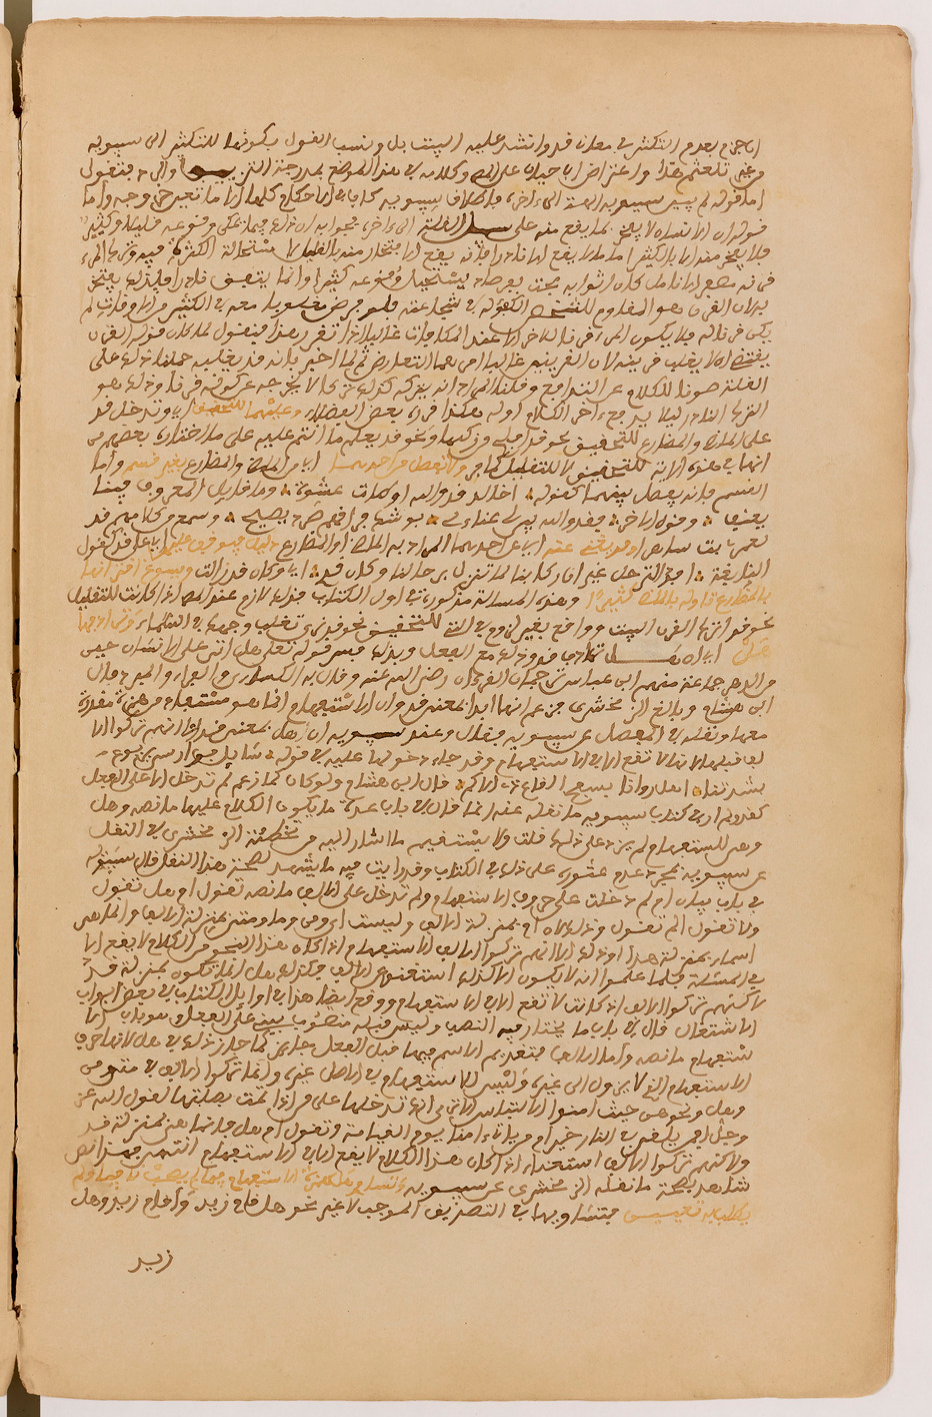 اجزم بعدم التكثير في معاد قد وانشد عليه البيت بل ونسب القول بكونها للتكثير الى سيبويه
واعتراض ابي حيان على وكلامه في هذا الموضع بدرجة
اما قوله لم يبين سيبويه الجهة الى ءاخره فاطلاق سيبويه كاف في الاحكام كلها الا ما تعين خروجه واما
قوله ان الانسان لا يفخر بما يقع منه على سبيل القلة الى ءاخره فجوابه ان ذلك فيما يمكن وقوعه قليلا وكثيرا
فلا يفخر منه الا بالكثير اما ما لا يقع الا نادرا فانه يقع الافتخار منه بالقليل لاستحالة الكثرة فيه وترك المرء
قرنه مصفر الانامل كان اثوابه مجت بفرصاد يستحيل وقوعه كثيرا وانما يتفق نادرا فلذلك يفتخر
به لان القرن هو المقاوم للشخص الكفؤ له في شجاعته فلو فرض مغلوبا معه في الكثير من الاوقات لم
يكن قرنا له فلا يكون المرء قرنا للاخر الا عند المكافات غالبا اذا تقرر هذا فنقول لما كان قوله القرن
يقتضي انه لا يغلب قرينه لان القرينين غالب امرهما التعارض ثم لما اخبر بانه قد يغلبه حملنا ذلك على
القلة صونا للكلام عن التدافع وقلنا المراد انه يتركه كذلك تركا لا يخرجه عن كونه قرنا وذلك هو
الترك النادر ليلا يدفع ءاخر الكلام اوله هكذا قرره بعض الفضلاء وعليهما للتحقيق اي وتدخل قد
على الماضي والمضارع للتحقيق نحو قد افلح من زكيها ونحو قد يعلم ما انتم عليه على ما اختاره بعضهم من
انها في هذه الاية للتحقيق لا للتقليل كما مر ولا تفصل من احدهما اي من الماضي والمضارع بغير قسم واما
القسم فانه يفصل بينهما كقوله اخالد قد والله اوطات عشوة وما قايل المعروف فينا
يعنف وقول الاخر فقد والله بين لي عناءي بوشك فراقهم صرد يصيح وسمع من كلامهم قد
لعمري بت ساهرا وقد يغني عنه اي عن احدهما المراد به الماضي او المضارع دليل فيوقف عليها اي على قد كقول
النابغة افد الترحل غير ان ركابنا لما تزل برحالنا وكان قد اي وكان قد زالت ويسوغ اقترانها
بالمضارع تاوله بالماضي كثيرا وهذه المسالة مذكورة في اول الكتاب فذلك لازم عند المص اذا كانت للتقليل
نحو قد اترك القرن البيت وواقع بغير لزوم في التي للتحقيق نحو قد نرى تقلب وجهك في السماء وترادفها
هل اي ان هل ترادف قد وذلك مع الفعل وبذلك فسر قوله تعلى هل اتى على الانسان حين
من الدهر جماعة منهم ابن عباس ترجمان القرءان رضي الله عنه وقال به الكسائي والفراء والمبرد وقال
ابن هشام وبالغ الزمخشري فزعم انها ابدا بمعنى قد وان الاستفهام انما هو مستفاد من همزة مقدرة
معها ونقله في المفصل عن سيبويه فقال وعند سيبويه ان هل بمعنى قد الا انهم تركوا الا
لف قبلها لانها لا تقع الا في الاستفهام وقد جاء دخولها عليه في قوله سايل فوارس يربوع
بشدتنا اهل راونا بسفح القاع ذي الاكم قال ابن هشام ولو كان كما زعم لم تدخل الا على الفعل
كقد ولم ار في كتاب سيبويه ما نقله عنه انما قال في باب عدة ما يكون الكلام عليها ما نصه وهل
وهي للاستفهام ولم يزد على ذلك قلت ولا يستقيم ما اشار اليه من تخطئة الزمخشري في النقل
عن سيبويه بمجرد عدم عثوره على ذلك في الكتاب وقد رايت فيه ما يشهد لصحة هذا النقل قال سيبويه
في باب بيان ام لم دخلت على حروف الاستفهام ولم تدخل على الالف ما نصه تقول ام هل تقول
ولا تقول ام اتقول وذلك لان ام بمنزلة الالف وليست اي ومن وما ومتى بمنزلة الالف وانما هي
اسماء بمنزلة هذا وذلك الا انهم تركوا الالف الاستفهام اذ كان هذا النحو من الكلام لا يقع الا
في المسئلة فلما علموا انه لا يكون الا كذلك استغنوا عن الالف وكذلك هل انما تكون بمنزلة قد
لاكنهم تركوا الالف اذ كانت لا تقع الا في الاستفهام ووقع ايضا هذا في اوايل الكتاب في بعض ابواب
الاشتغال قال في باب ما يختار فيه النصب وليس قبله منصوب بني على الفعل وهو باب الا
ستفهام ما نصه واما الالف فتقديم الاسم فيها قبل الفعل جايز كما جاز ذلك في هلا لانها حرف
الاستفهام الذي لا يزول الى غيره وليس للاستفهام في الاصل غيره وانما تركوا الالف في متى ومن
وهل ونحوهن حيث امنوا الالتباس الا ترى انك تدخلها على من اذا تمت بصلتها لقول الله عز
وجل افمن يلقى في النار خير ام من ياتي ءامنا يوم القيامة وتقول ام هل فانما هي بمنزلة قد
ولاكنهم تركوا الالف استغناء اذ كان هذا الكلام لا يقع الا في الاستفهام انتهى فهذا نص
شاهد بصحة ما نقله الزمخشري عن سيبويه وتساوي هل همزة الاستفهام فيما لم يصحب نافيا ولم
يطلب به تعيين فتساويها في التصديق الموجب لا غير نحو هل قام زيد واقام زيد وهل
زيد